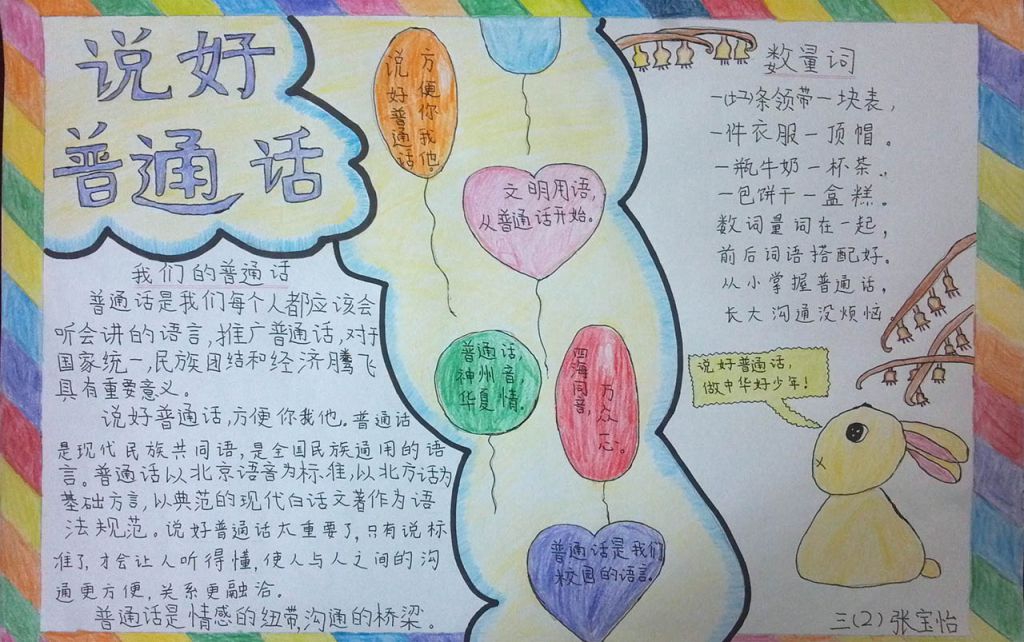 说好
普通话
我们的普通话
普通话是我们每个人都应该会
听会讲的语言,推广普通话,对于
国家统一,民族团结和经济腾飞
具有重要意义。
说好普通话,方便你我他。普通话
是现代民族共同语,是全国民族通用的语
言。普通话以北京语音为标准,以北方话为
基础方言,以典范的现代白话文著作为语
法规范。说好普通话太重要了,只有说标
准了,才会让人听得懂,使人与人之间的沟
通更方便,关系更融洽。
普通话是情感的纽带,沟通的桥梁。
说好普通话
方便你我他。
文明用语,
从普通话开始。
普通话,
神州音,
华夏情。
四海同音,
万众一心。
普通话是我们
校园的语言.
数量词
条领带一块表,
一件衣服一顶帽。
一瓶牛奶一杯茶.
一包饼干一盒糕。
数词量词在一起,
前后词语搭配好。
从小掌握普通话,
长大沟通没烦恼.
说好普通话,
做中华好少年!
三(2)张宝怡